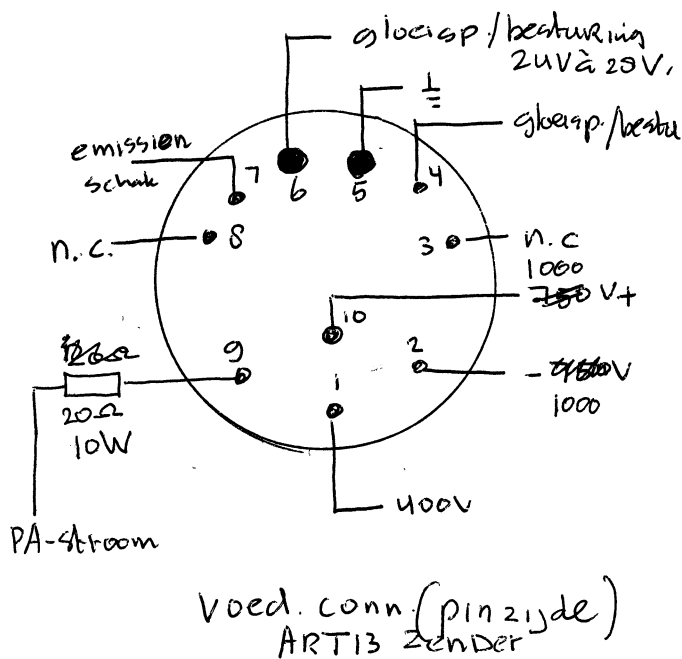 gloeisp./besturing
24V à 28V.
gloeisp./bestu
emission
schak
7
6
5
4
n.c.
8
3
n.c
1000
V+
10
9
2
- V
1000
20Ω
10W
1
400V
PA-stroom
Voed. conn. (pinzijde)
ART13 Zender